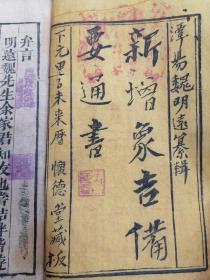 潭昜魏明遠纂輯
新增象吉備
要通書
下元甲子未來曆 懷德堂藏板
弁言
明遠魏先生余家君知友也